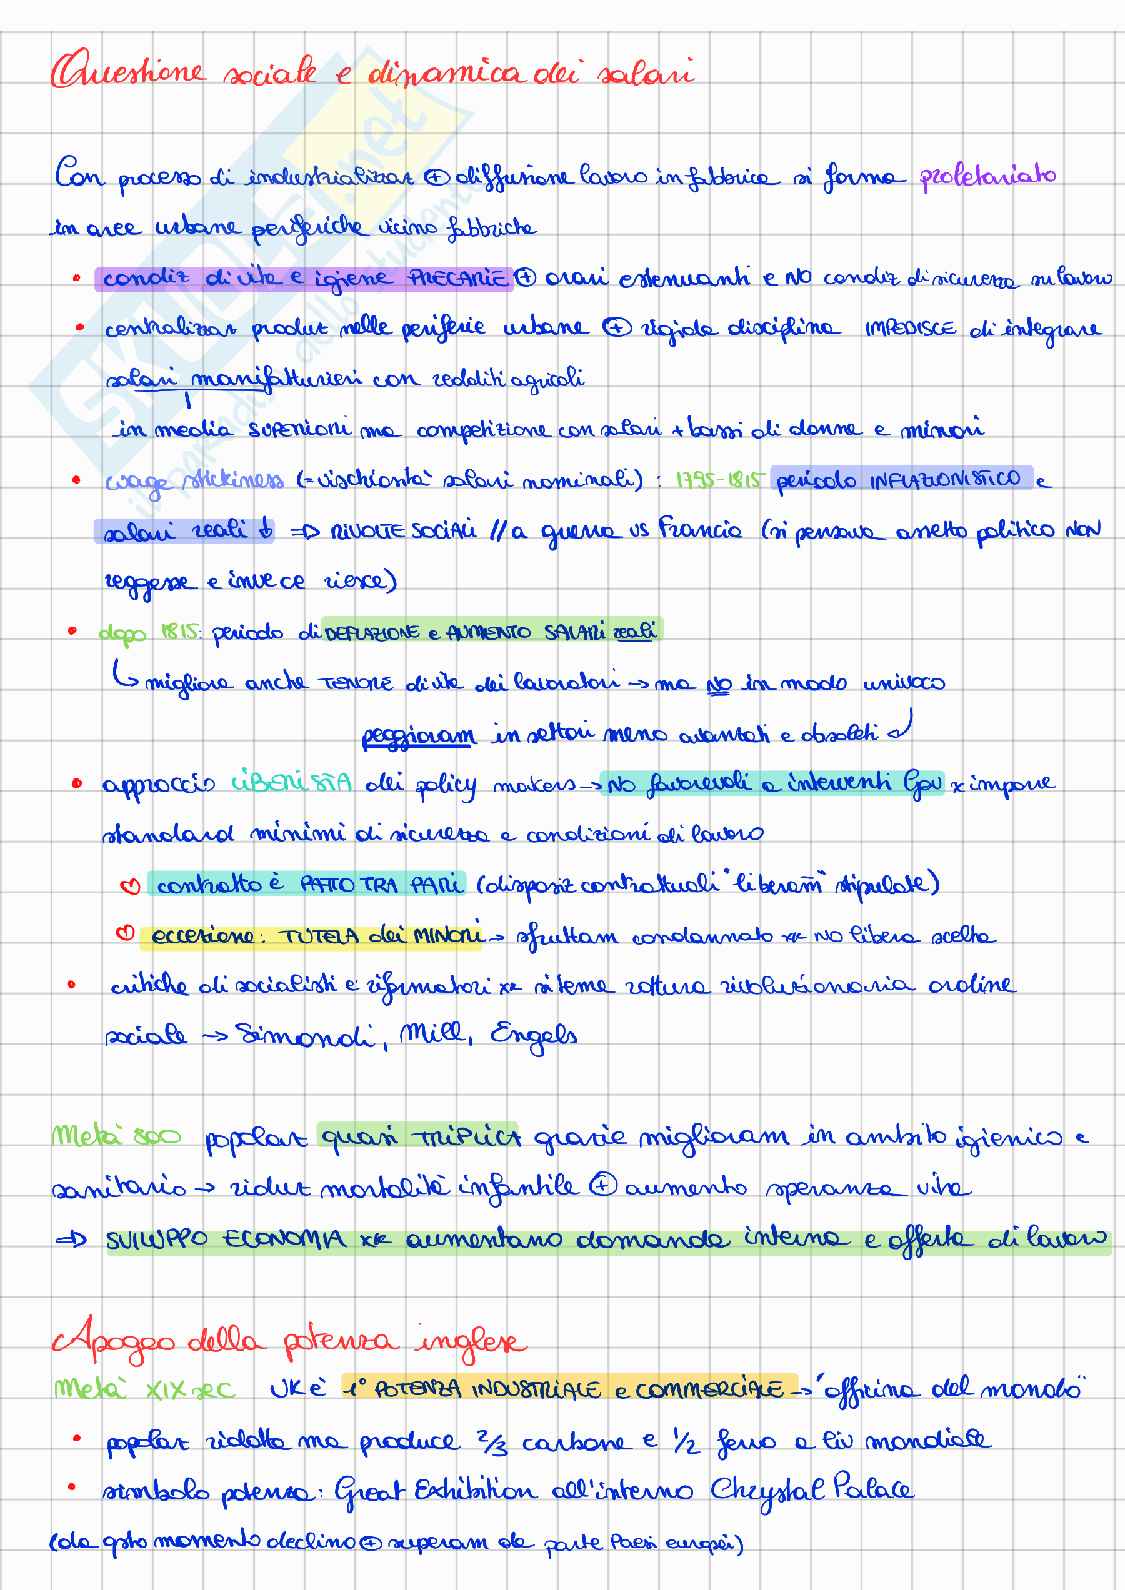 Questione sociale e dinamica dei salari
Con processo di industrializzaz ⊕ diffusione lavoro in fabbrica si forma proletariato
in aree urbane periferiche vicino fabbriche
• condiz di vita e igiene PRECARIE ⊕ orari estenuanti e NO condiz di sicurezza su lavoro
• centralizzaz produz nelle periferie urbane ⊕ rigida disciplina IMPEDISCE di integrare
salari manifatturieri con redditi agricoli
in media SUPERIORI ma competizione con salari + bassi di donne e minori
• wage stickiness (= vischiosità salari nominali) : 1795-1815 periodo INFLAZIONISTICO e
salari reali ↓ => RIVOLTE SOCIALI // a guerra VS Francia (si pensava assetto politico NON
reggesse e invece riesce)
• dopo 1815: periodo di DEFLAZIONE e AUMENTO SALARI reali
↳ migliora anche TENORE di vita dei lavoratori → ma NO in modo univoco
peggioram in settori meno avanzati e obsoleti ↵
• approccio LIBERISTA dei policy makers → NO favorevoli a interventi Gov x imporre
standard minimi di sicurezza e condizioni di lavoro
♡ contratto è PATTO TRA PARI (disposiz contrattuali "liberam" stipulate)
♡ eccezione: TUTELA dei MINORI → sfruttam condannato xk NO libera scelta
• critiche di socialisti e riformatori xk si teme rottura rivoluzionaria ordine
sociale → Sismondi, Mill, Engels
Metà 800 popolaz quasi TRIPLICA grazie miglioram in ambito igienico e
sanitario → riduz mortalità infantile ⊕ aumento speranza vita
=> SVILUPPO ECONOMIA xk aumentano domanda interna e offerta di lavoro
Apogeo della potenza inglese
Metà XIX sec UK è 1° POTENZA INDUSTRIALE e COMMERCIALE → "officina del mondo"
• popolaz ridotta ma produce 2/3 carbone e 1/2 ferro a liv mondiale
• simbolo potenza: Great Exhibition all'interno Chrystal Palace
(da qsto momento declino ⊕ superam da parte Paesi europei)